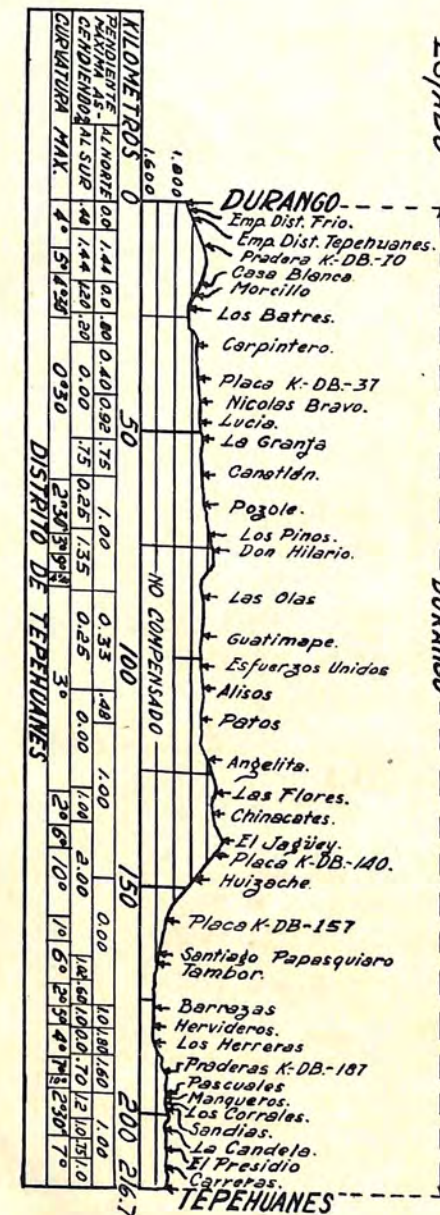 DURANGO
Emp. Dist. Frio.
Emp. Dist. Tepehuanes.
Pradera K-DB-10
Casa Blanca
Morcillo
Los Batres.
Carpintero.
Placa K-DB-37
Nicolas Bravo.
Lucia.
La Granja
Canatlán.
Pozole.
Los Pinos.
Don Hilario.
Las Olas
Guatimape.
Esfuerzos Unidos
Alisos
Patos
Angelita.
Las Flores.
Chinacates.
El Jagüey.
Placa K-DB-140.
Huizache.
Placa K-DB-157
Santiago Papasquiaro
Tambor.
Barrazas
Hervideros.
Los Herreras
Praderas K-DB-187
Pascuales
Manqueros.
Los Corrales.
Sandias.
La Candela.
El Presidio
Carreras.
TEPEHUANES
DURANGO
1,800
1,600
NO COMPENSADO
KILOMETROS 0 50 100 150 200 216.7
PENDIENTE MAXIMA AS-CENDIENDO
AL NORTE 0.0 1.44 0.0 .80 0.40 0.92 .75 1.00 0.33 .48 1.00 0.00 1.0 1.80 1.60 1.00
AL SUR .48 1.44 1.20 .20 0.00 .75 0.25 1.35 0.25 0.00 1.00 2.00 .60 1.00 .70 1.2 1.0
CURVATURA MAX. 4° 5° 4°30 0°30 2°30 3° 3° 2° 6° 10° 1° 6° 2° 4° 2°30' 7°
DISTRITO DE TEPEHUANES